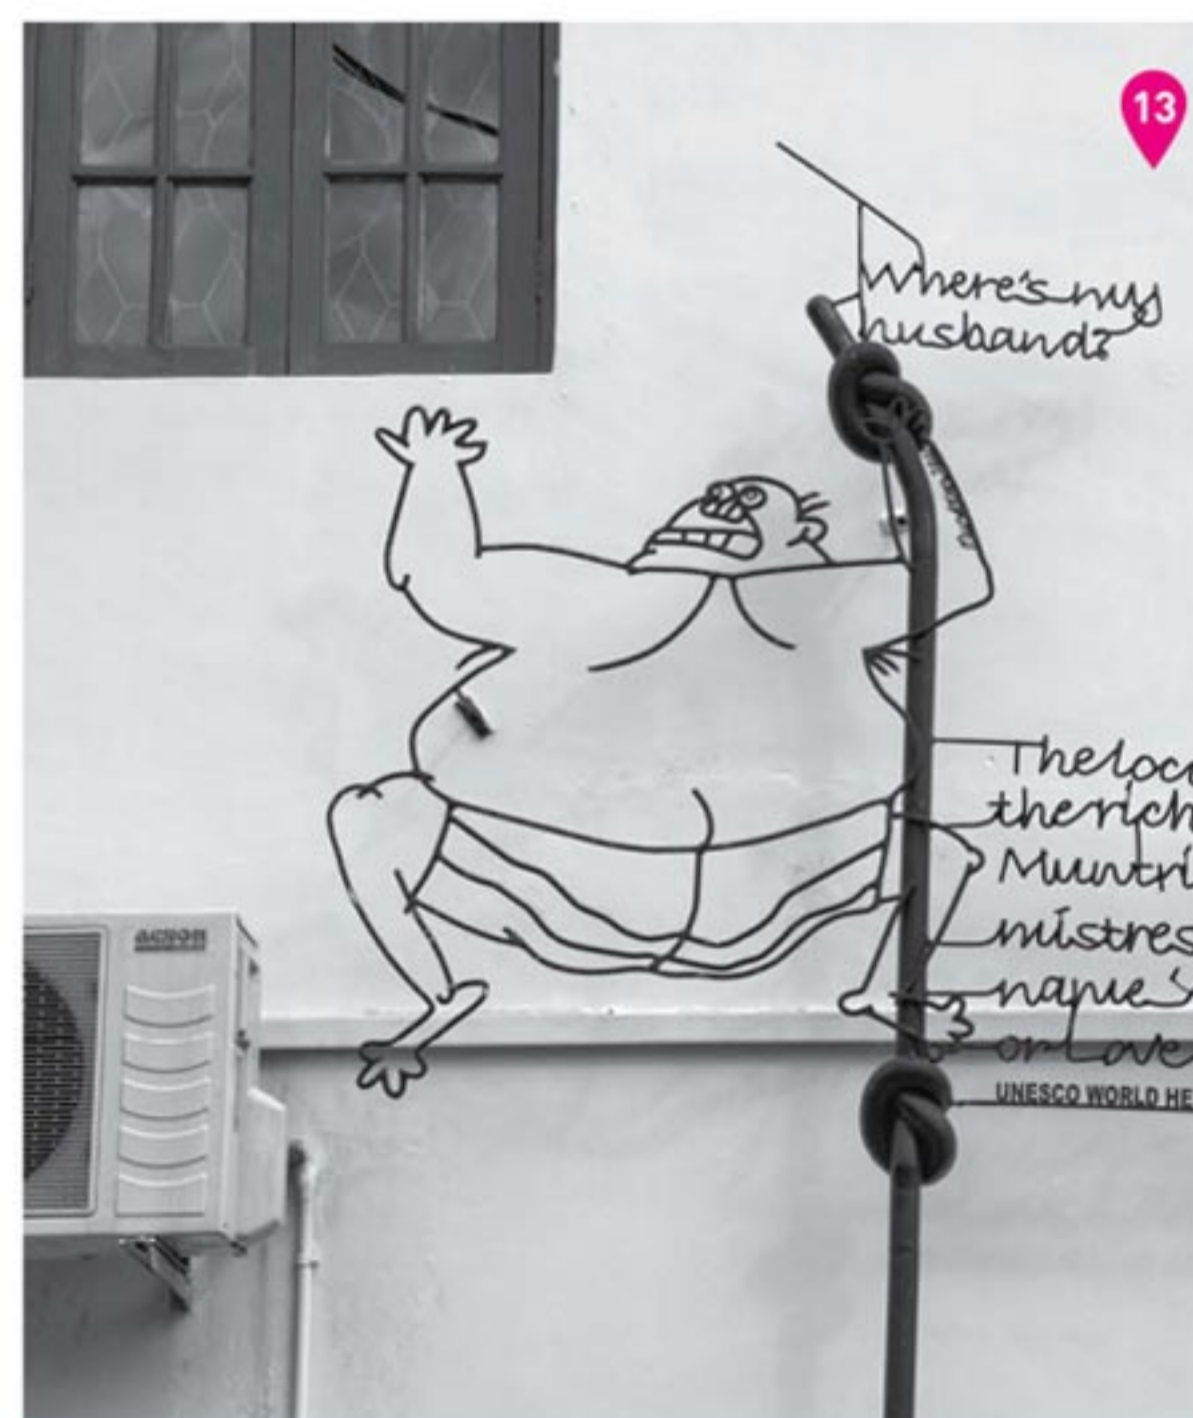 13
Where's my
husband?
The loc
the rich
Muntri
mistres
name's
or Love
UNESCO WORLD HE
acson